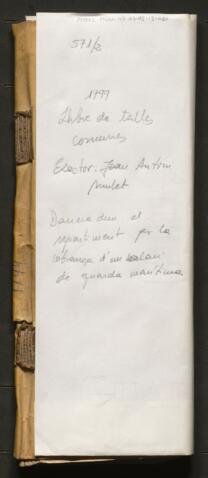 571/3
1799
Llibre de talles
comunes
Elector: Joan Antoni
Mulet
Darrera duu el
repartiment per la
cobrança d'un salari
de guarda marítima